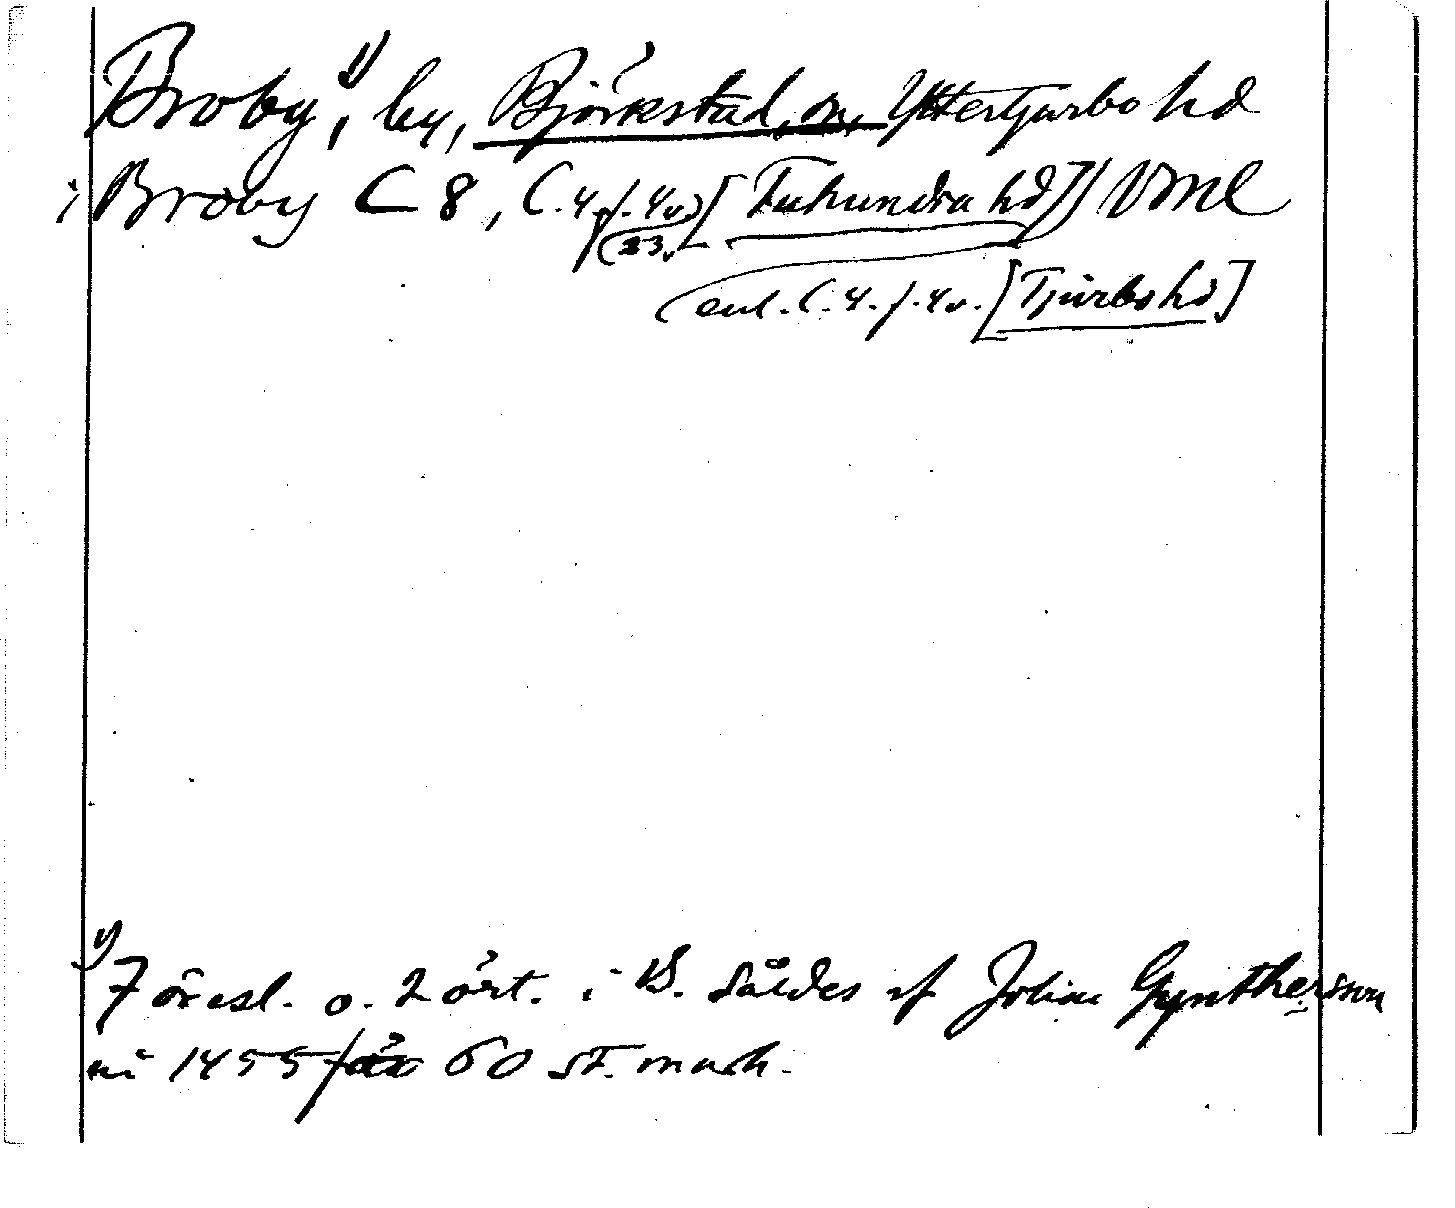 Broby¹⁾, by, Björkstad, sn, Yttertjurbo hd
i Broby C 8, C. 4. f. 4 v (23 v [Tuhundra hd]) Vml
(enl. C. 4. f. 4 v. [Tjurbo hd]
1) 7 öresl. o. 2 ört. i B. såldes af Johan Gynthersson
1455 för 60 st. mark.